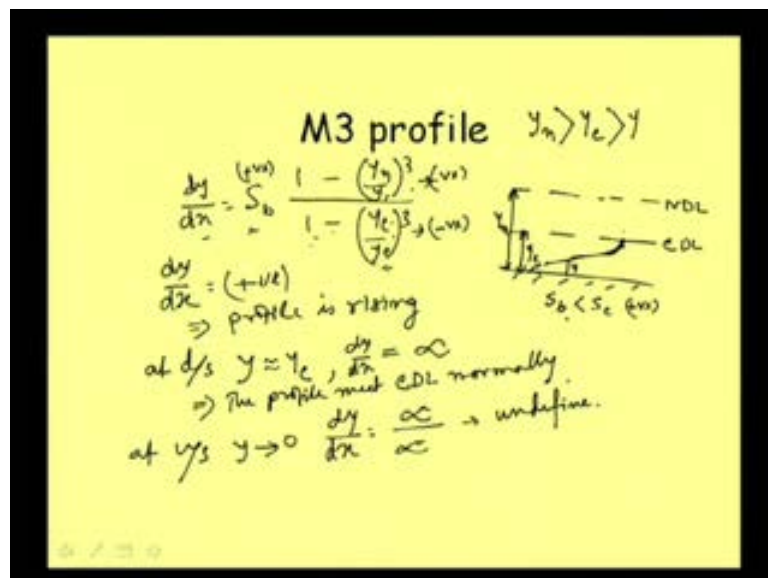 M3 profile yn > yc > y
dy/dx = Sb (+ve) 1 - (yn/y)³ → (-ve) / 1 - (yc/y)³ → (-ve)
NDL
CDL
yn
yc
y
Sb < Sc (+ve)
dy/dx = (+ve)
⇒ profile is rising
at d/s y ≈ yc, dy/dx = ∝
⇒ The profile meet CDL normally.
at u/s y → 0 dy/dx = ∝/∝ → undefine.